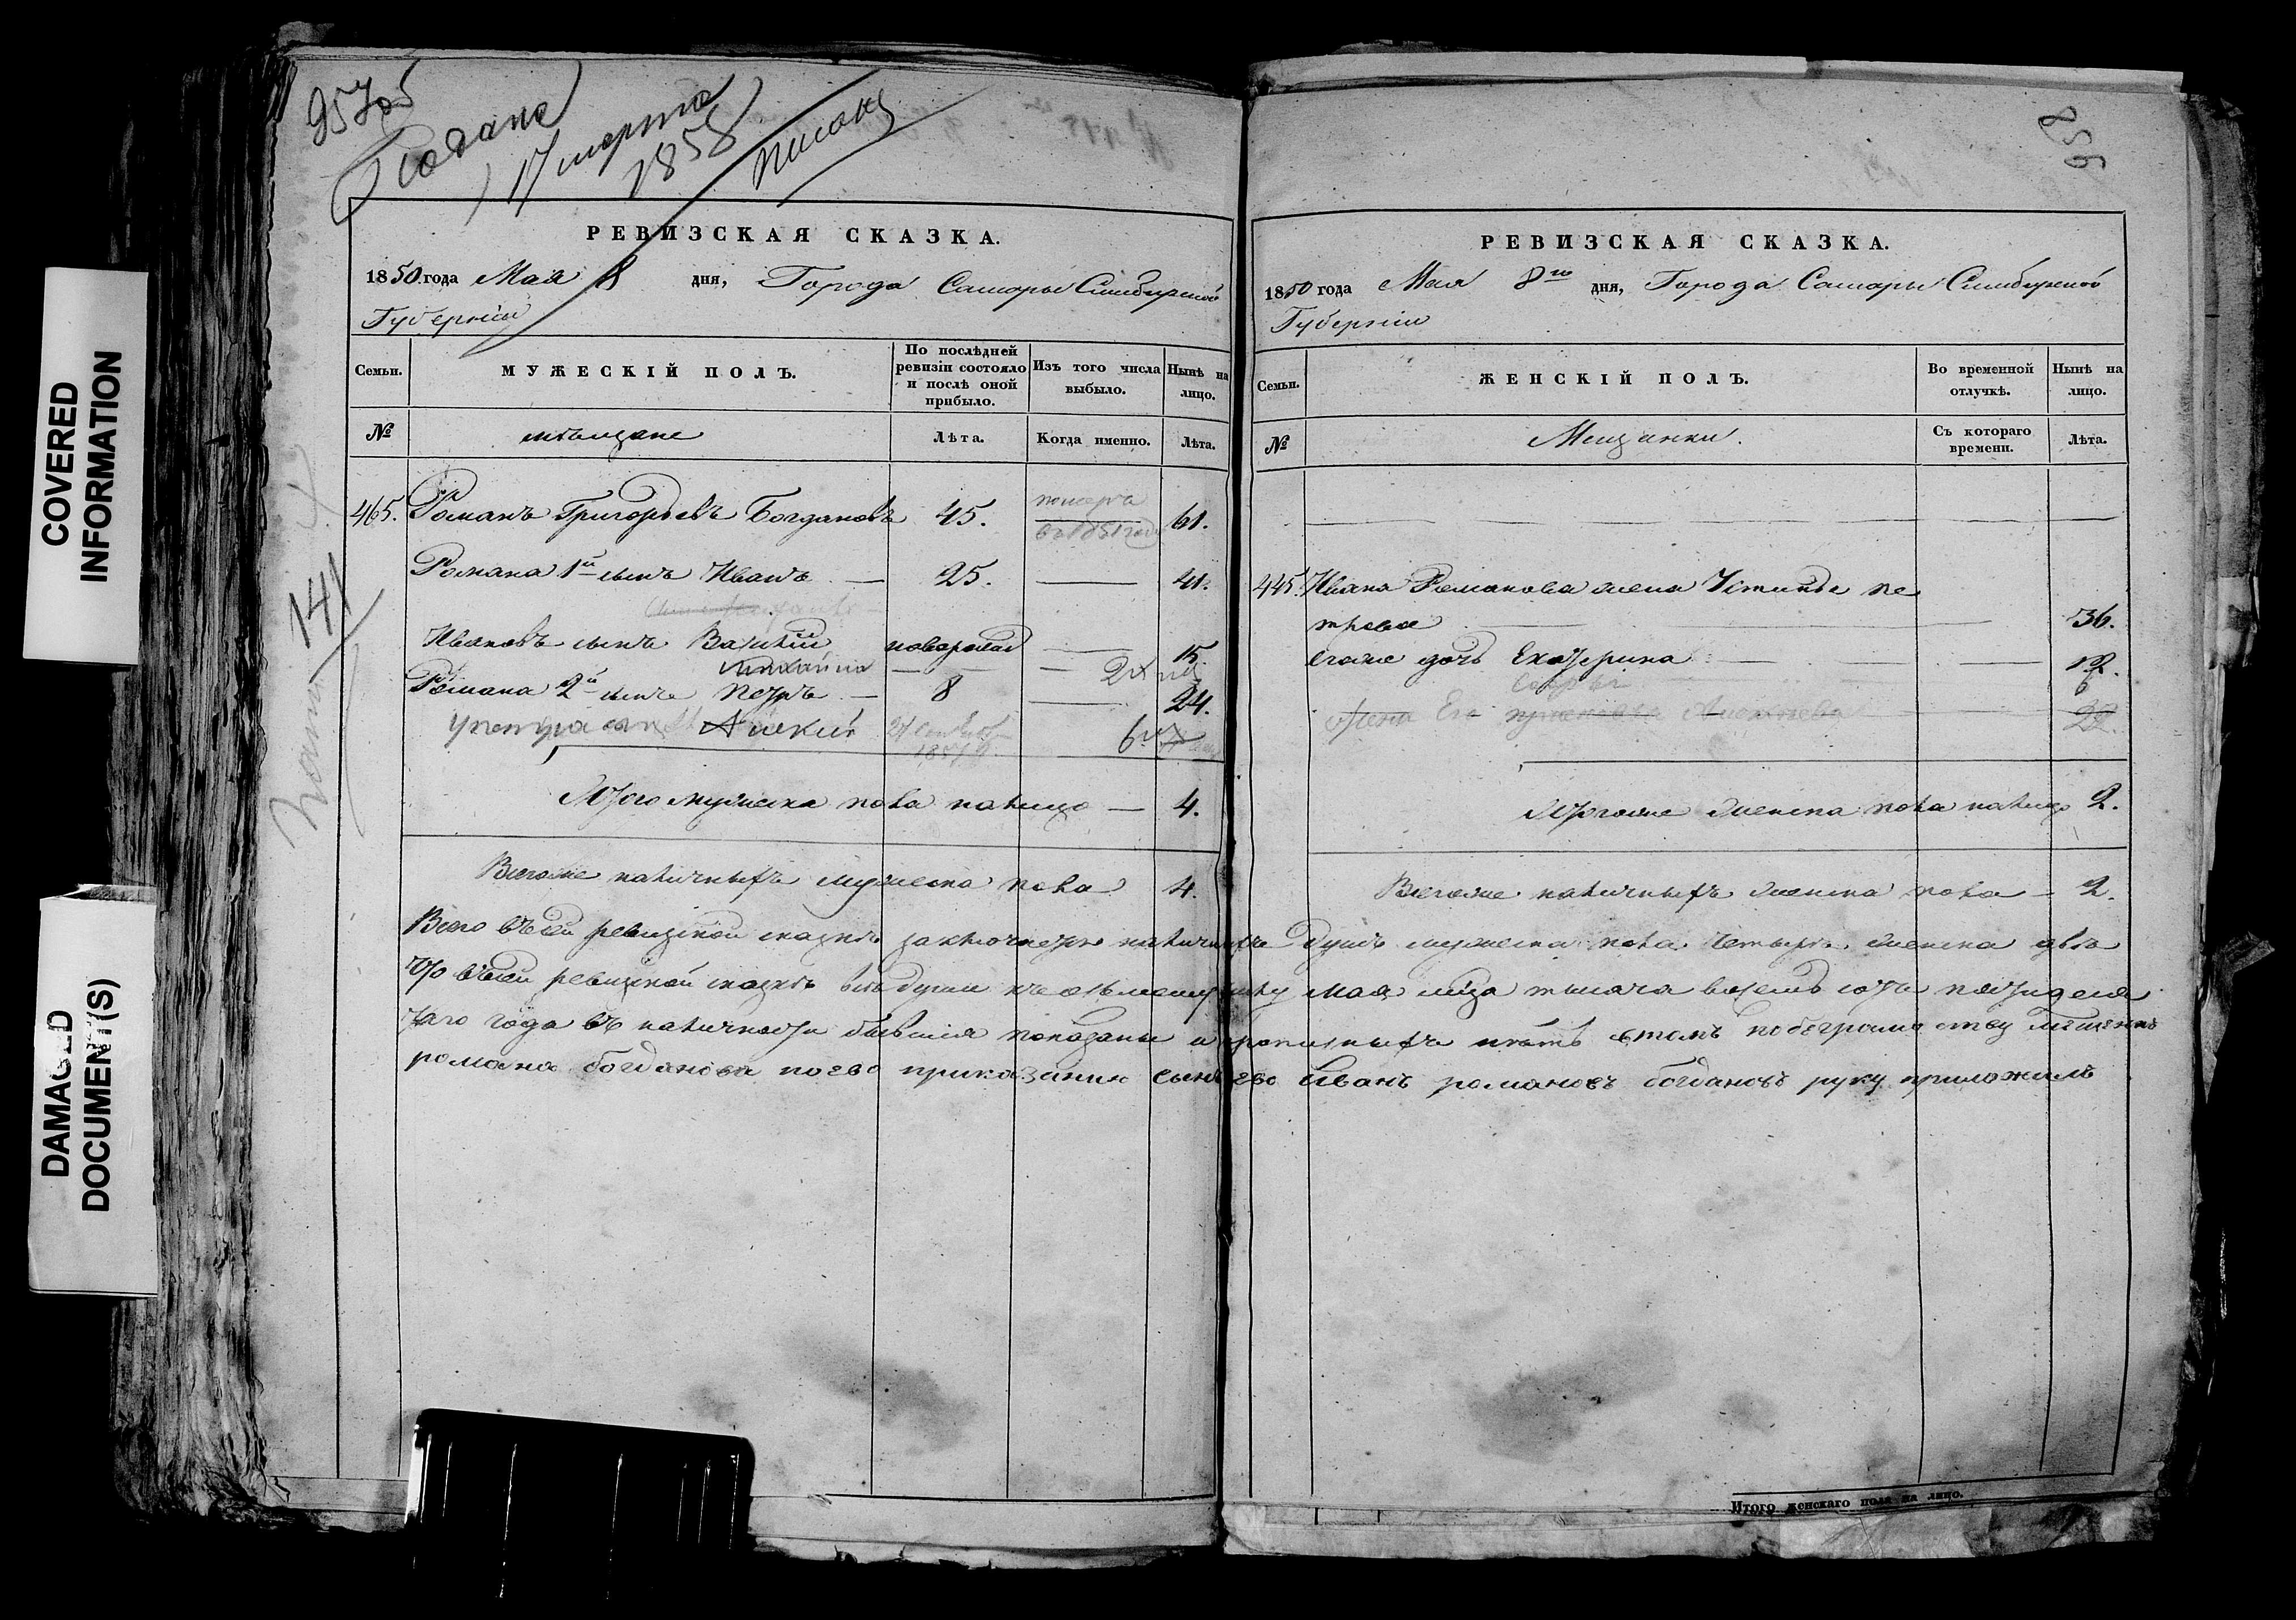 COVERED
INFORMATION
DAMAGED
DOCUMENT(S)
957об
Подана
17 марта
1858
писанъ
РЕВИЗСКАЯ СКАЗКА.
1850 года Мая 8 дня, Города Самары Симбирской
Губерніи
Семьи. МУЖЕСКІЙ ПОЛЪ. По послѣдней ревизіи состояло и послѣ оной прибыло. Изъ того числа выбыло. Нынѣ на лицо.
№ мѣщане Лѣта. Когда именно. Лѣта.
465. Романъ Григорьевъ Богдановъ 45. померъ въ 1851 году 61.
Романа 1й сынъ Иванъ — 25. — 41.
Ивановъ сынъ Василій новорожд — 15.
Михаила — — 2х
Романа 2й сынъ Петръ — 8 — 24.
У петра сынъ Алексий 6
Итого мужеска пола налицо — 4.
Всегоже наличныхъ мужеска пола 4.
141
958
РЕВИЗСКАЯ СКАЗКА.
1850 года Мая 8го дня, Города Самары Симбирской
Губерніи
Семьи. ЖЕНСКІЙ ПОЛЪ. Во временной отлучкѣ. Нынѣ на лицо.
№ Мещанки. Съ котораго времени. Лѣта.
445. Ивана Романова жена Устинья Пе
трова — 36.
Егоже дочь Екатерина — — 12.
6
Жена Его Алексеева 22.
Итогоже женска пола налицо 2.
Всегоже наличныхъ женска пола — 2.
Всего въ сей ревизской сказкѣ заключается наличныхъ душъ мужеска пола четыре женска двѣ
Что въ сей ревизской сказкѣ всѣ души къ осьмому числу мая м҃ца тысяча восемь сотъ пятидеся
таго года въ наличности бывшія показаны и прописныхъ нѣтъ в томъ побезграмотству мещенина
романа богданова поево приказанию сынъ ево иванъ романовъ богдановъ руку приложилъ
Итого женскаго пола на лицо.